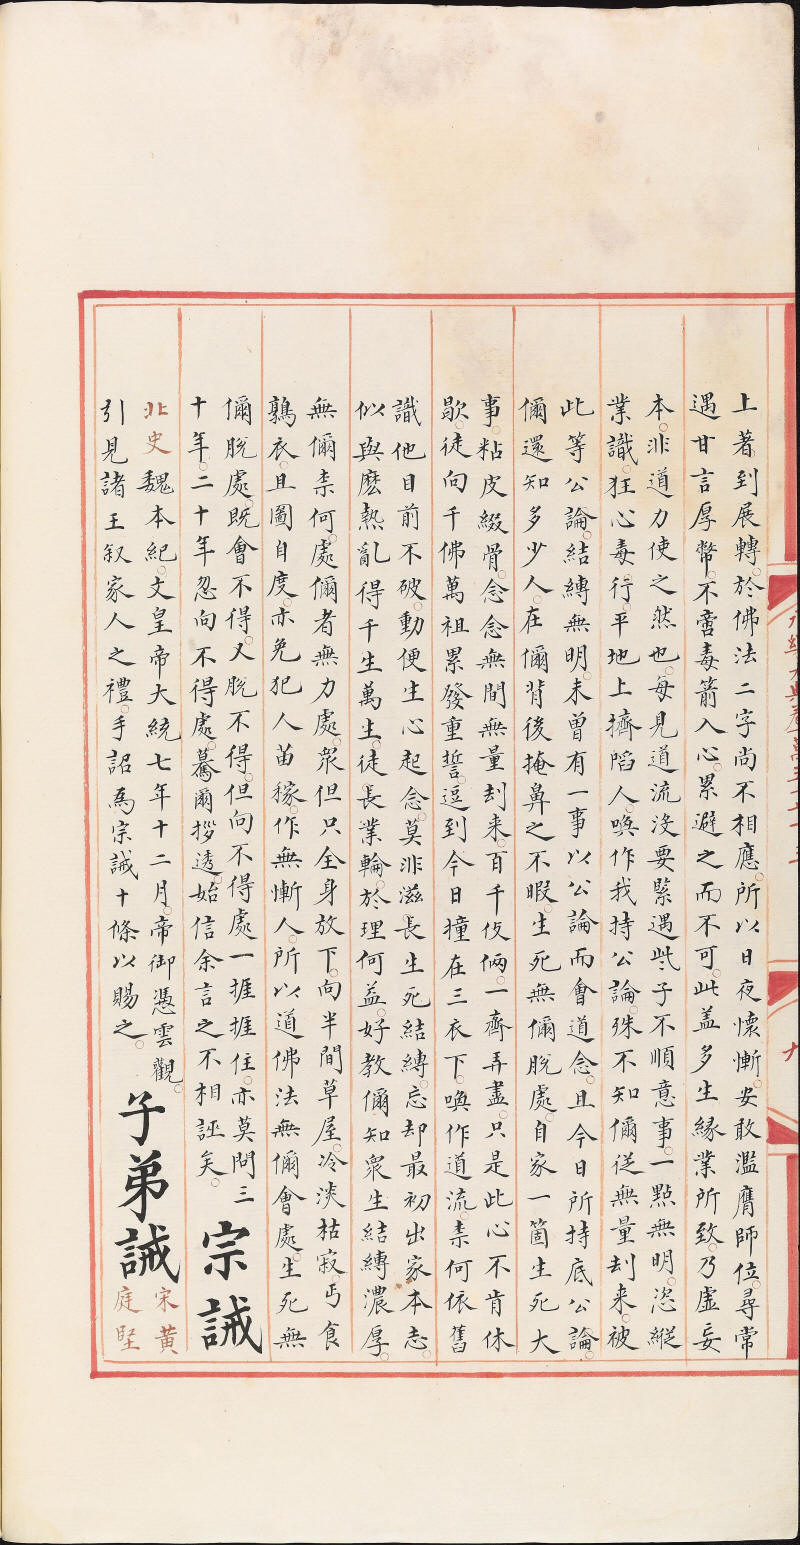 上著到展轉於佛法二字尚不相應所以日夜懷慚安敢濫膺師位尋常
遇甘言厚幣不啻毒箭入心累避之而不可此盖多生緣業所致乃虛妄
本非道力使之然也每見道流沒要緊遇些子不順意事一點無明恣縱
業識狂心毒行平地上擠陷人喚作我持公論殊不知儞從無量刦來被
此等公論結縛無明未曾有一事以公論而會道念且今日所持底公論
儞還知多少人在儞背後掩鼻之不暇生死無儞脫處自家一箇生死大
事粘皮綴骨念念無間無量刦來百千伎倆一齊弄盡只是此心不肯休
歇徒向千佛萬祖累發重誓逗到今日撞在三衣下喚作道流柰何依舊
識他目前不破動便生心起念莫非滋長生死結縛忘却最初出家本志
似與麽熱亂得千生萬生徒長業輪於理何益好教儞知衆生結縛濃厚
無儞柰何處儞者無力處衆但只全身放下向半間草屋冷淡枯寂丐食
鶉衣且圖自度亦免犯人苗稼作無慚人所以道佛法無儞會處生死無
儞脫處既會不得又脫不得但向不得處一捱捱住亦莫問三
十年二十年忽向不得處驀爾拶透始信余言之不相誣矣
宗誡
北史魏本紀文皇帝大統七年十二月帝御憑雲觀
引見諸王叙家人之禮手詔為宗誡十條以賜之
子弟誡
宋黃
庭堅